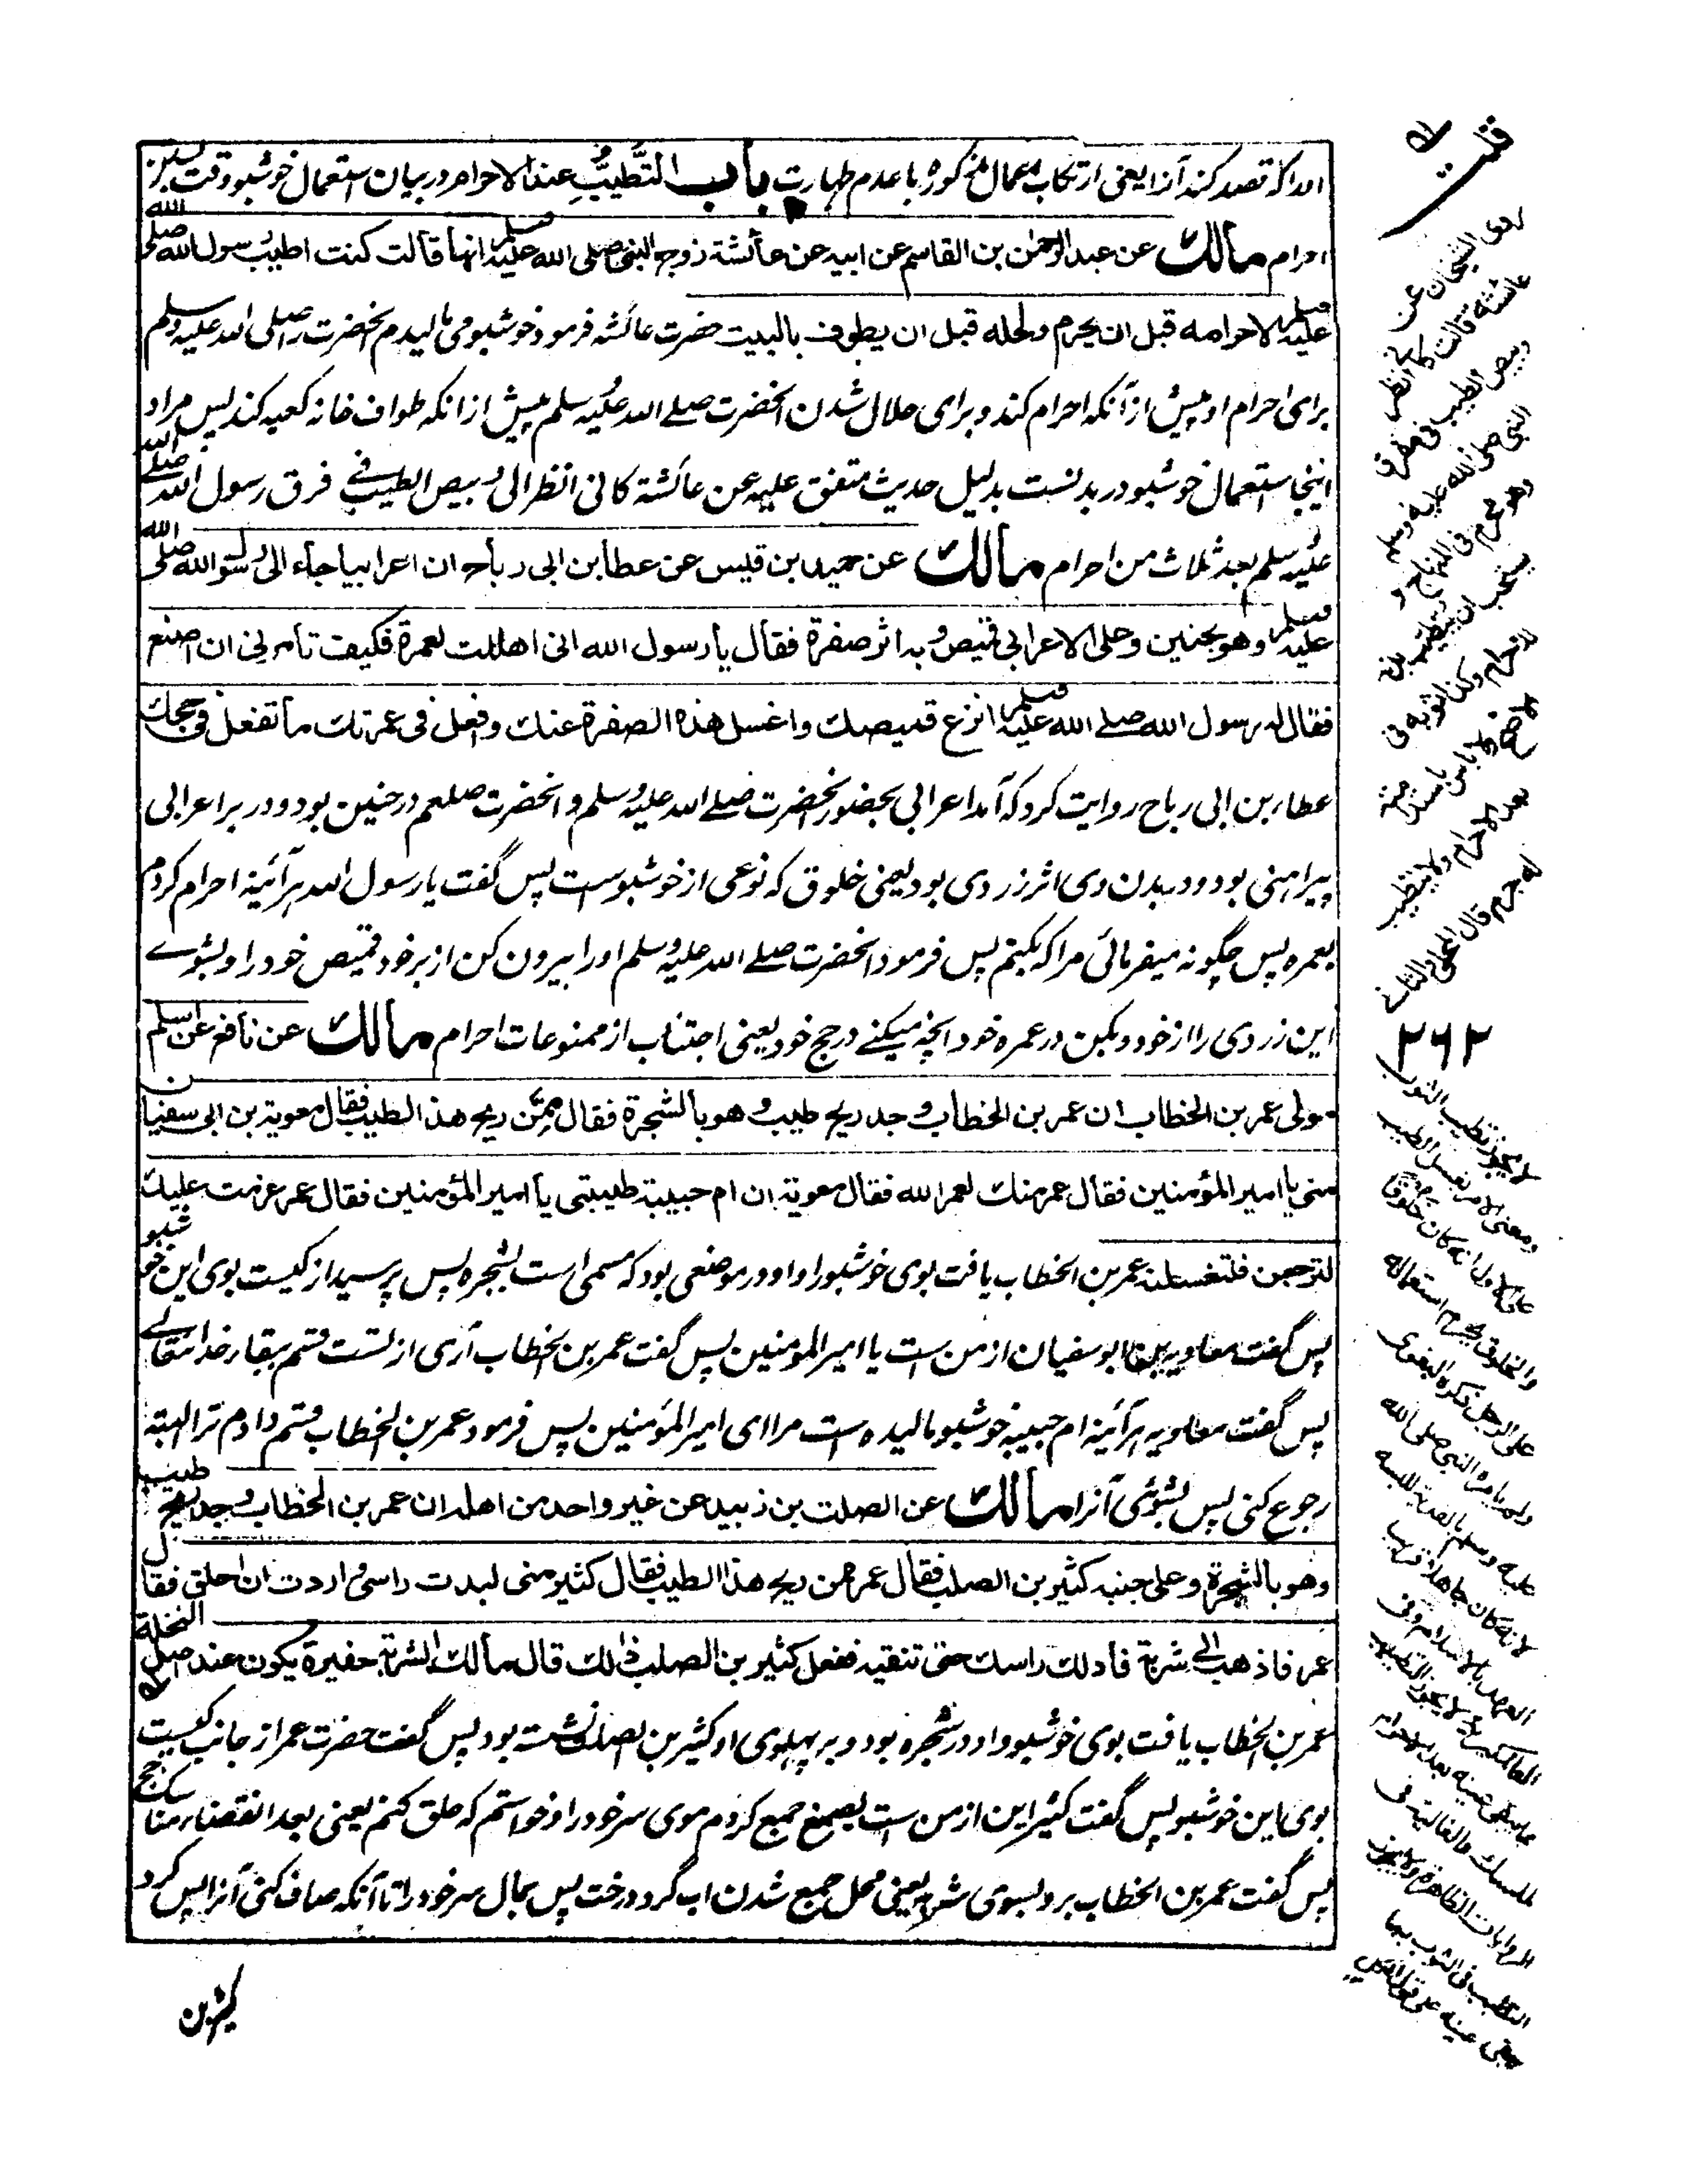 او اگر قصد کند آنرا یعنی ارتکاب اعمال مذکوره با عدم طهارت باب التَّطَیُّبِ عند الاحرام در بیان استعمال خوشبو وقت بستن
احرام مالك عن عبد الرحمٰن بن القاسم عن ابیه عن عائشة زوج النبی صلی الله علیه وسلم انها قالت کنت اطیب رسول الله صلی الله
علیه وسلم لاحرامه قبل ان یحرم ولحله قبل ان یطوف بالبیت حضرت عائشه فرمود خوشبو می مالیدم آنحضرت را صلی الله علیه وسلم
برای احرام او پیش از آنکه احرام کند و برای حلال شدن آنحضرت صلے الله علیه وسلم پیش ازانکه طواف خانه کعبه کند پس مراد
اینجا استعمال خوشبو در بدنست بدلیل حدیث متفق علیه عن عائشة کانی انظر الی وبیص الطیب فے فرق رسول الله صلے الله
علیه وسلم بعد ثلاث من احرام مالك عن حمید بن قیس عن عطا بن ابی رباح ان اعرابیا جاء الی رسول الله صلی الله
علیه وسلم وهو بحنین وعلی الاعرابی قمیص وبه اثر صفرة فقال یا رسول الله انی اهللت لعمرة فکیف تأمرنی ان اصنع
فقال له رسول الله صلے الله علیه وسلم انزع قمیصك واغسل هذه الصفرة عنك وافعل فی عمرتك ما تفعل فی حجك
عطاء بن ابی رباح روایت کرد که آمد اعرابی بحضور آنحضرت صلے الله علیه وسلم و آنحضرت صلعم در حنین بود و در بر اعرابی
پیراهنی بود و در بدن وی اثر زردی بود یعنی خلوق که نوعی از خوشبوست پس گفت یا رسول الله هرآئینه احرام کردم
بعمره پس چگونه میفرمائی مرا که بکنم پس فرمود آنحضرت صلے الله علیه وسلم اورا بیرون کن از بر خود قمیص خود را و بشوے
این زردی را از خود و بکن در عمره خود آنچه میکنے در حج خود یعنی اجتناب از ممنوعات احرام مالك عن نافع عن اسلم
مولی عمر بن الخطاب ان عمر بن الخطاب وجد ریح طیب وهو بالشجرة فقال ممن ریح هذا الطیب فقال معویة بن ابی سفیان
منی یا امیر المؤمنین فقال عمر منك لعمر الله فقال معویة ان ام حبیبة طیبتنی یا امیر المؤمنین فقال عمر عزمت علیك
لترجعن فلتغسلنه عمر بن الخطاب یافت بوی خوشبو را و او در موضعی بود که مسمی است بشجره پس پرسید از کیست بوی این خوشبو
پس گفت معاویه بن ابو سفیان از من است یا امیر المومنین پس گفت عمر بن الخطاب آری از تست قسم ببقاء خدا تعالے
پس گفت معاویه هرآئینه ام حبیبه خوشبو مالیده است مرا ای امیر المؤمنین پس فرمود عمر بن الخطاب قسم دادم ترا البته
رجوع کنی پس بشوئی آنرا مالك عن الصلت بن زبید عن غیر واحد من اهله ان عمر بن الخطاب وجد ریح طیب
وهو بالشجرة وعلی جنبه کثیر بن الصلت فقال عمر ممن ریح هذا الطیب فقال کثیر منی لبدت راسی واردت ان احلق فقال
عمر فاذهب الی شربة فادلك راسك حتی تنقیه ففعل کثیر بن الصلت ذلك قال مالك الشربة حفیرة یکون عند اصل النخلة
عمر بن الخطاب یافت بوی خوشبو و او در شجره بود و بر پهلوی او کثیر بن الصلت نشسته بود پس گفت حضرت عمر از جانب کیست
بوی این خوشبو پس گفت کثیر این از من است بصمغ جمع کردم موی سر خود را و خواستم که حلق کنم یعنی بعد انقضاء مناسک حج
پس گفت عمر بن الخطاب برو بسوی شربه یعنی محل جمع شدن آب گرد درخت پس بمال سر خود را تا آنکه صاف کنی آنرا پس کرد
کثیر بن
روی الشیخان عن
عائشة قالت کانی انظر
وبیص الطیب فی مفرق
النبی صلی الله علیه وسلم
وهو محرم فی المنهاج و
یستحب ان یتطیب بدنه
للاحرام وکذا ثوبه فی
الاصح ولا باس باستدامته
بعد الاحرام ولا بتطیب
له جرم قال المحلی والثانی
۲۶۲
لا یجوز تطیب الثوب
ومعنی الامر بغسل الطیب
علی الاول انه کان خلوقا
والخلوق یحرم استعماله
علی الرجل ذکره البغوی
ولم یامره النبی صلی الله
علیه وسلم بالفدیة للبسه
لانه کان جاهلا قریب
العهد بالاسلام وفی
العالمگیریة لا یجوز التطیب
بما یبقی عینه بعد الاحرام
کالمسك والغالیة فی
الروایات الظاهرة ولا یجوز
التطیب فی الثوب بما
یبقی عینه علی قول الکل